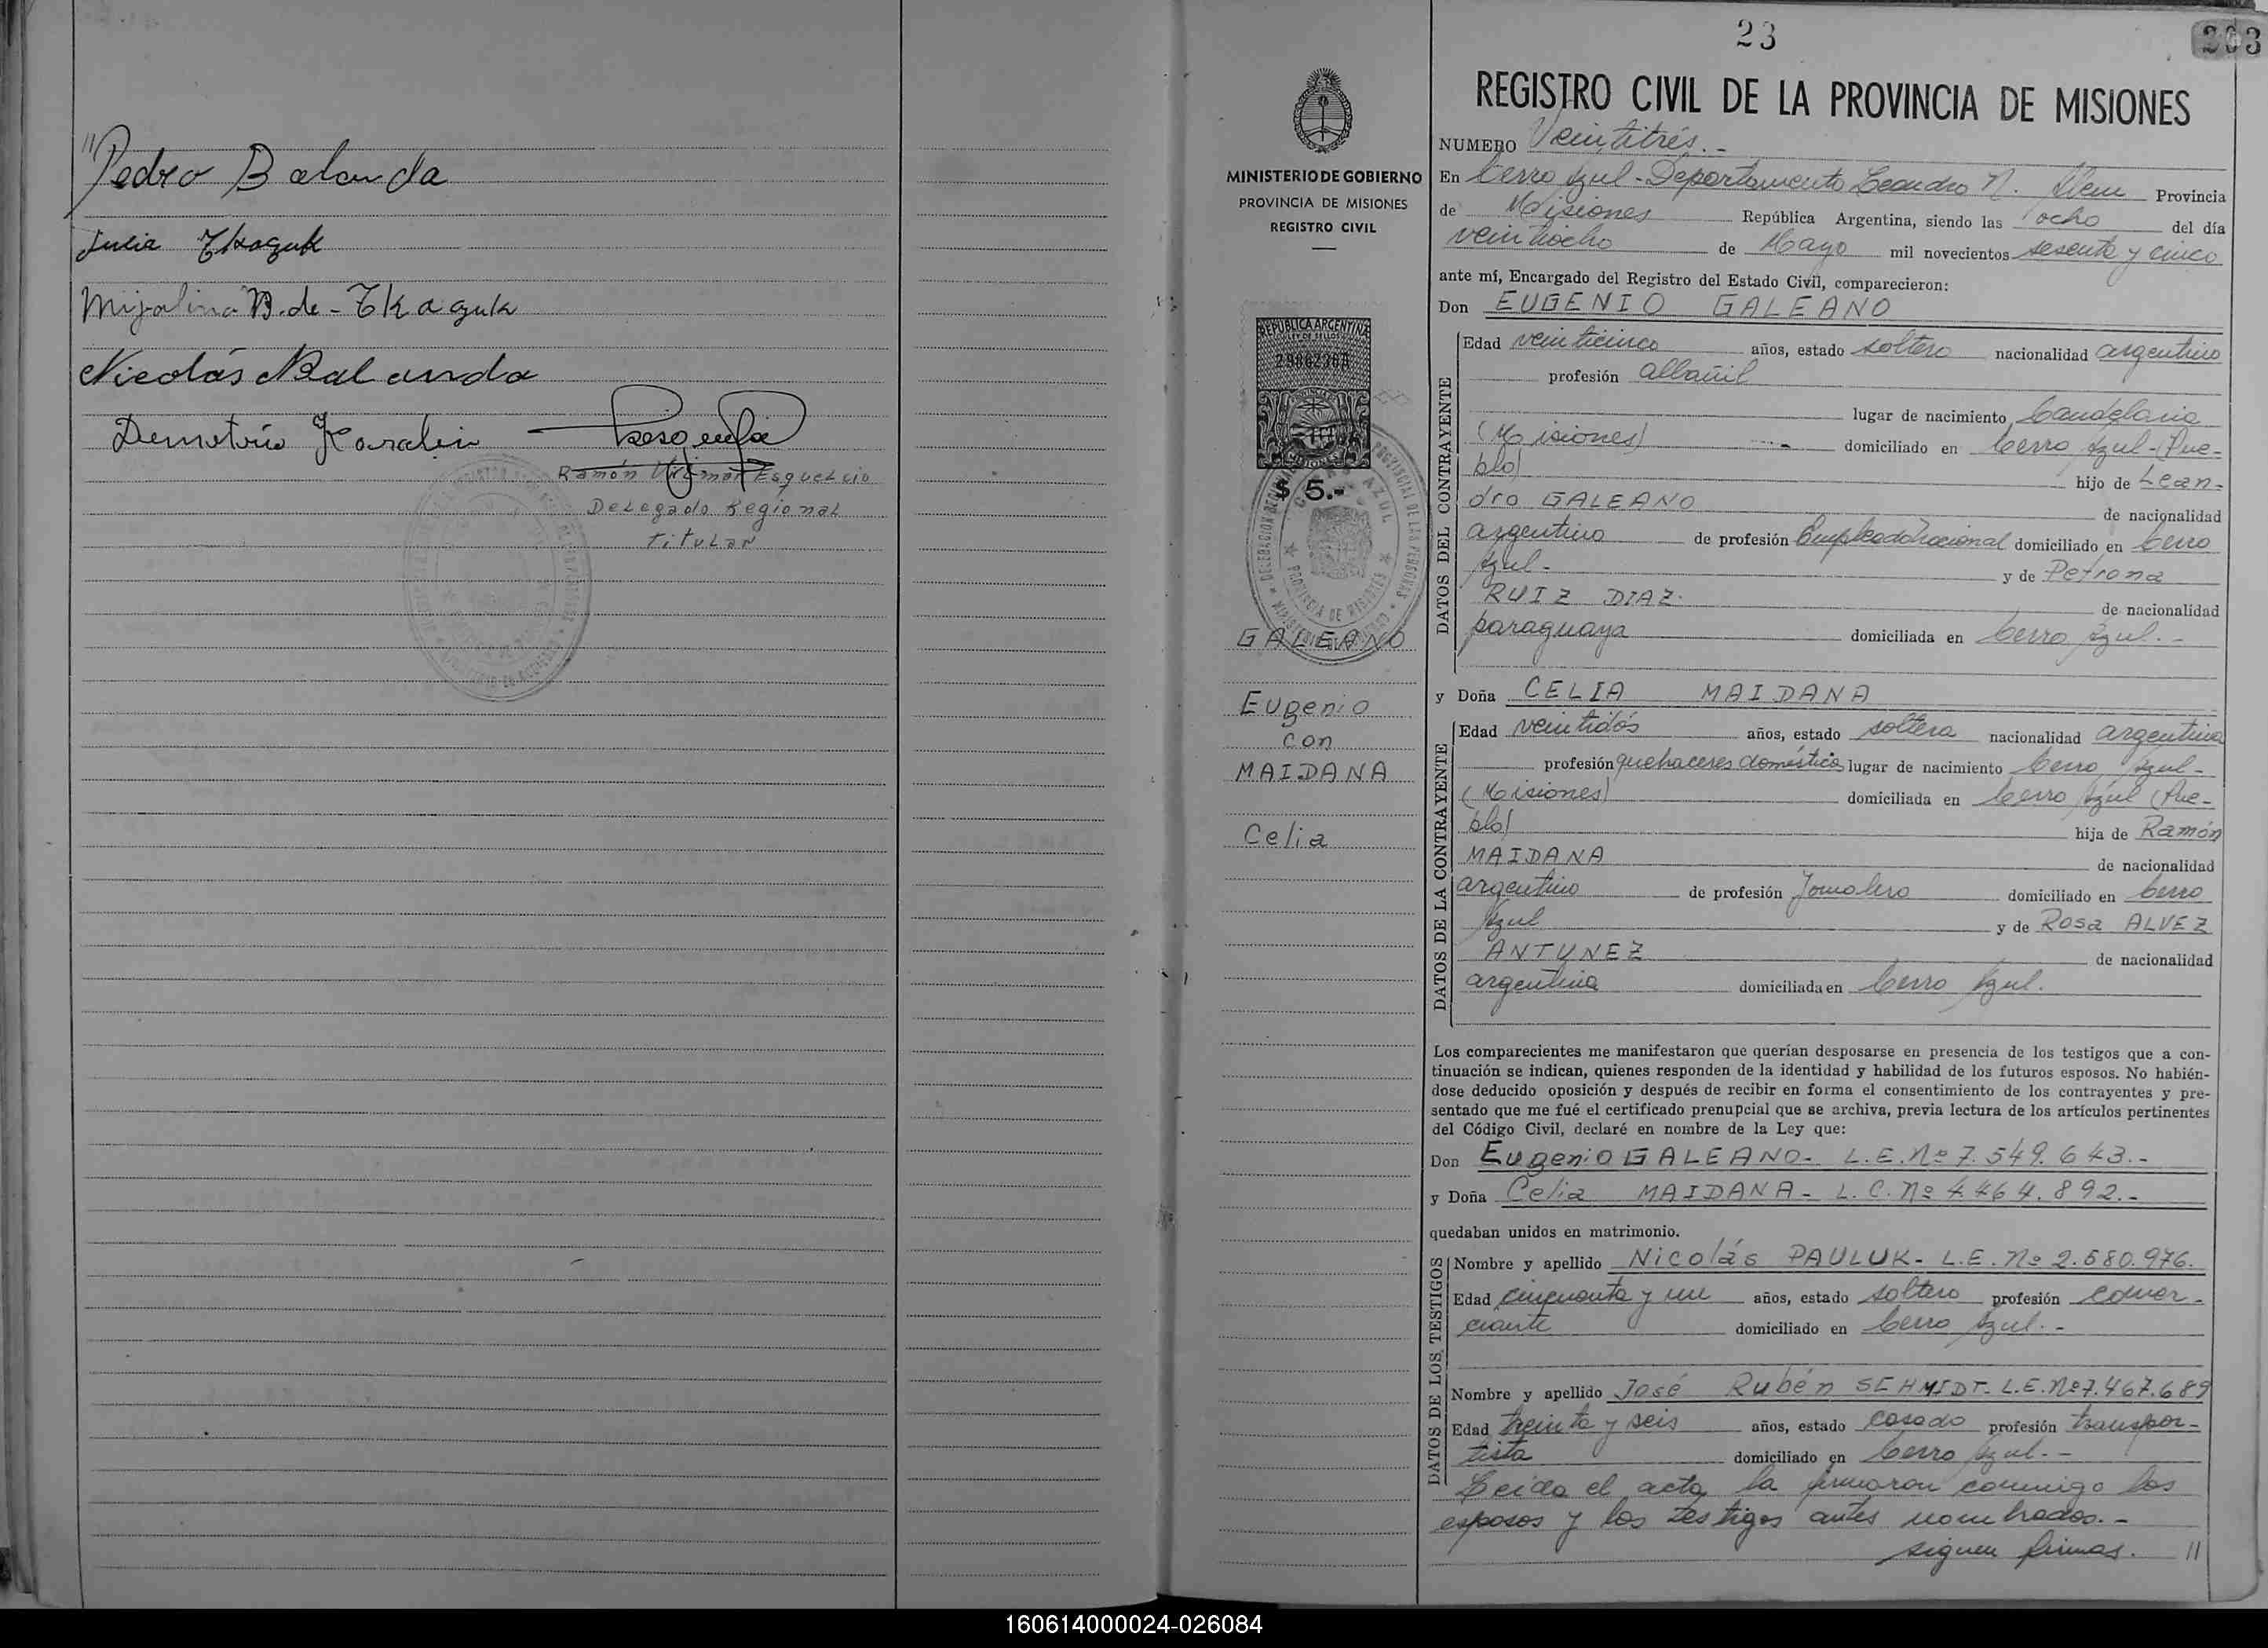 "Pedro Balanda
Julia Tkaczuk
Mijalina B. de - Tkaczuk
Nicolás Balanda
Demetrio Karalin
Ramón Esquelcio
Delegado Regional
Titular
23
203
REGISTRO CIVIL DE LA PROVINCIA DE MISIONES
MINISTERIO DE GOBIERNO
PROVINCIA DE MISIONES
REGISTRO CIVIL
REPUBLICA ARGENTINA
LEY DE SELLOS
MISIONES
$ 5.-
CERRO AZUL
PROVINCIA DE MISIONES
GALEANO
Eugenio
con
MAIDANA
Celia
NUMERO Veintitrés.-
En Cerro Azul - Departamento Leandro N. Alem Provincia
de Misiones República Argentina, siendo las ocho del día
veintiocho de Mayo mil novecientos sesenta y cinco
ante mí, Encargado del Registro del Estado Civil, comparecieron:
Don EUGENIO GALEANO
DATOS DEL CONTRAYENTE
Edad veinticinco años, estado soltero nacionalidad argentino
profesión albañil
lugar de nacimiento Candelaria
(Misiones) - domiciliado en Cerro Azul - (Pue-
blo) hijo de Lean-
dro GALEANO de nacionalidad
argentino de profesión Empleado Nacional domiciliado en Cerro
Azul - y de Petrona
RUIZ DIAZ. de nacionalidad
paraguaya domiciliada en Cerro Azul. -
y Doña CELIA MAIDANA
DATOS DE LA CONTRAYENTE
Edad veintidós años, estado soltera nacionalidad argentina
profesión quehaceres domésticos lugar de nacimiento Cerro Azul -
(Misiones) domiciliada en Cerro Azul (Pue-
blo) hija de Ramón
MAIDANA de nacionalidad
argentino de profesión Jornalero domiciliado en Cerro
Azul y de Rosa ALVEZ
ANTUNEZ de nacionalidad
argentina domiciliada en Cerro Azul.
Los comparecientes me manifestaron que querían desposarse en presencia de los testigos que a con-
tinuación se indican, quienes responden de la identidad y habilidad de los futuros esposos. No habién-
dose deducido oposición y después de recibir en forma el consentimiento de los contrayentes y pre-
sentado que me fué el certificado prenupcial que se archiva, previa lectura de los artículos pertinentes
del Código Civil, declaré en nombre de la Ley que:
Don Eugenio GALEANO - L.E. Nº 7.549.643.-
y Doña Celia MAIDANA - L.C. Nº 4.464.892.-
quedaban unidos en matrimonio.
DATOS DE LOS TESTIGOS
Nombre y apellido Nicolás PAULUK - L.E. Nº 2.580.976.
Edad cincuenta y un años, estado soltero profesión comer-
ciante domiciliado en Cerro Azul. -
Nombre y apellido José Rubén SCHMIDT - L.E. Nº 7.467.689
Edad treinta y seis años, estado casado profesión transpor-
tista domiciliado en Cerro Azul. -
Leída el acta, la firmaron conmigo los
esposos y los testigos antes nombrados. -
siguen firmas. //
160614000024-026084